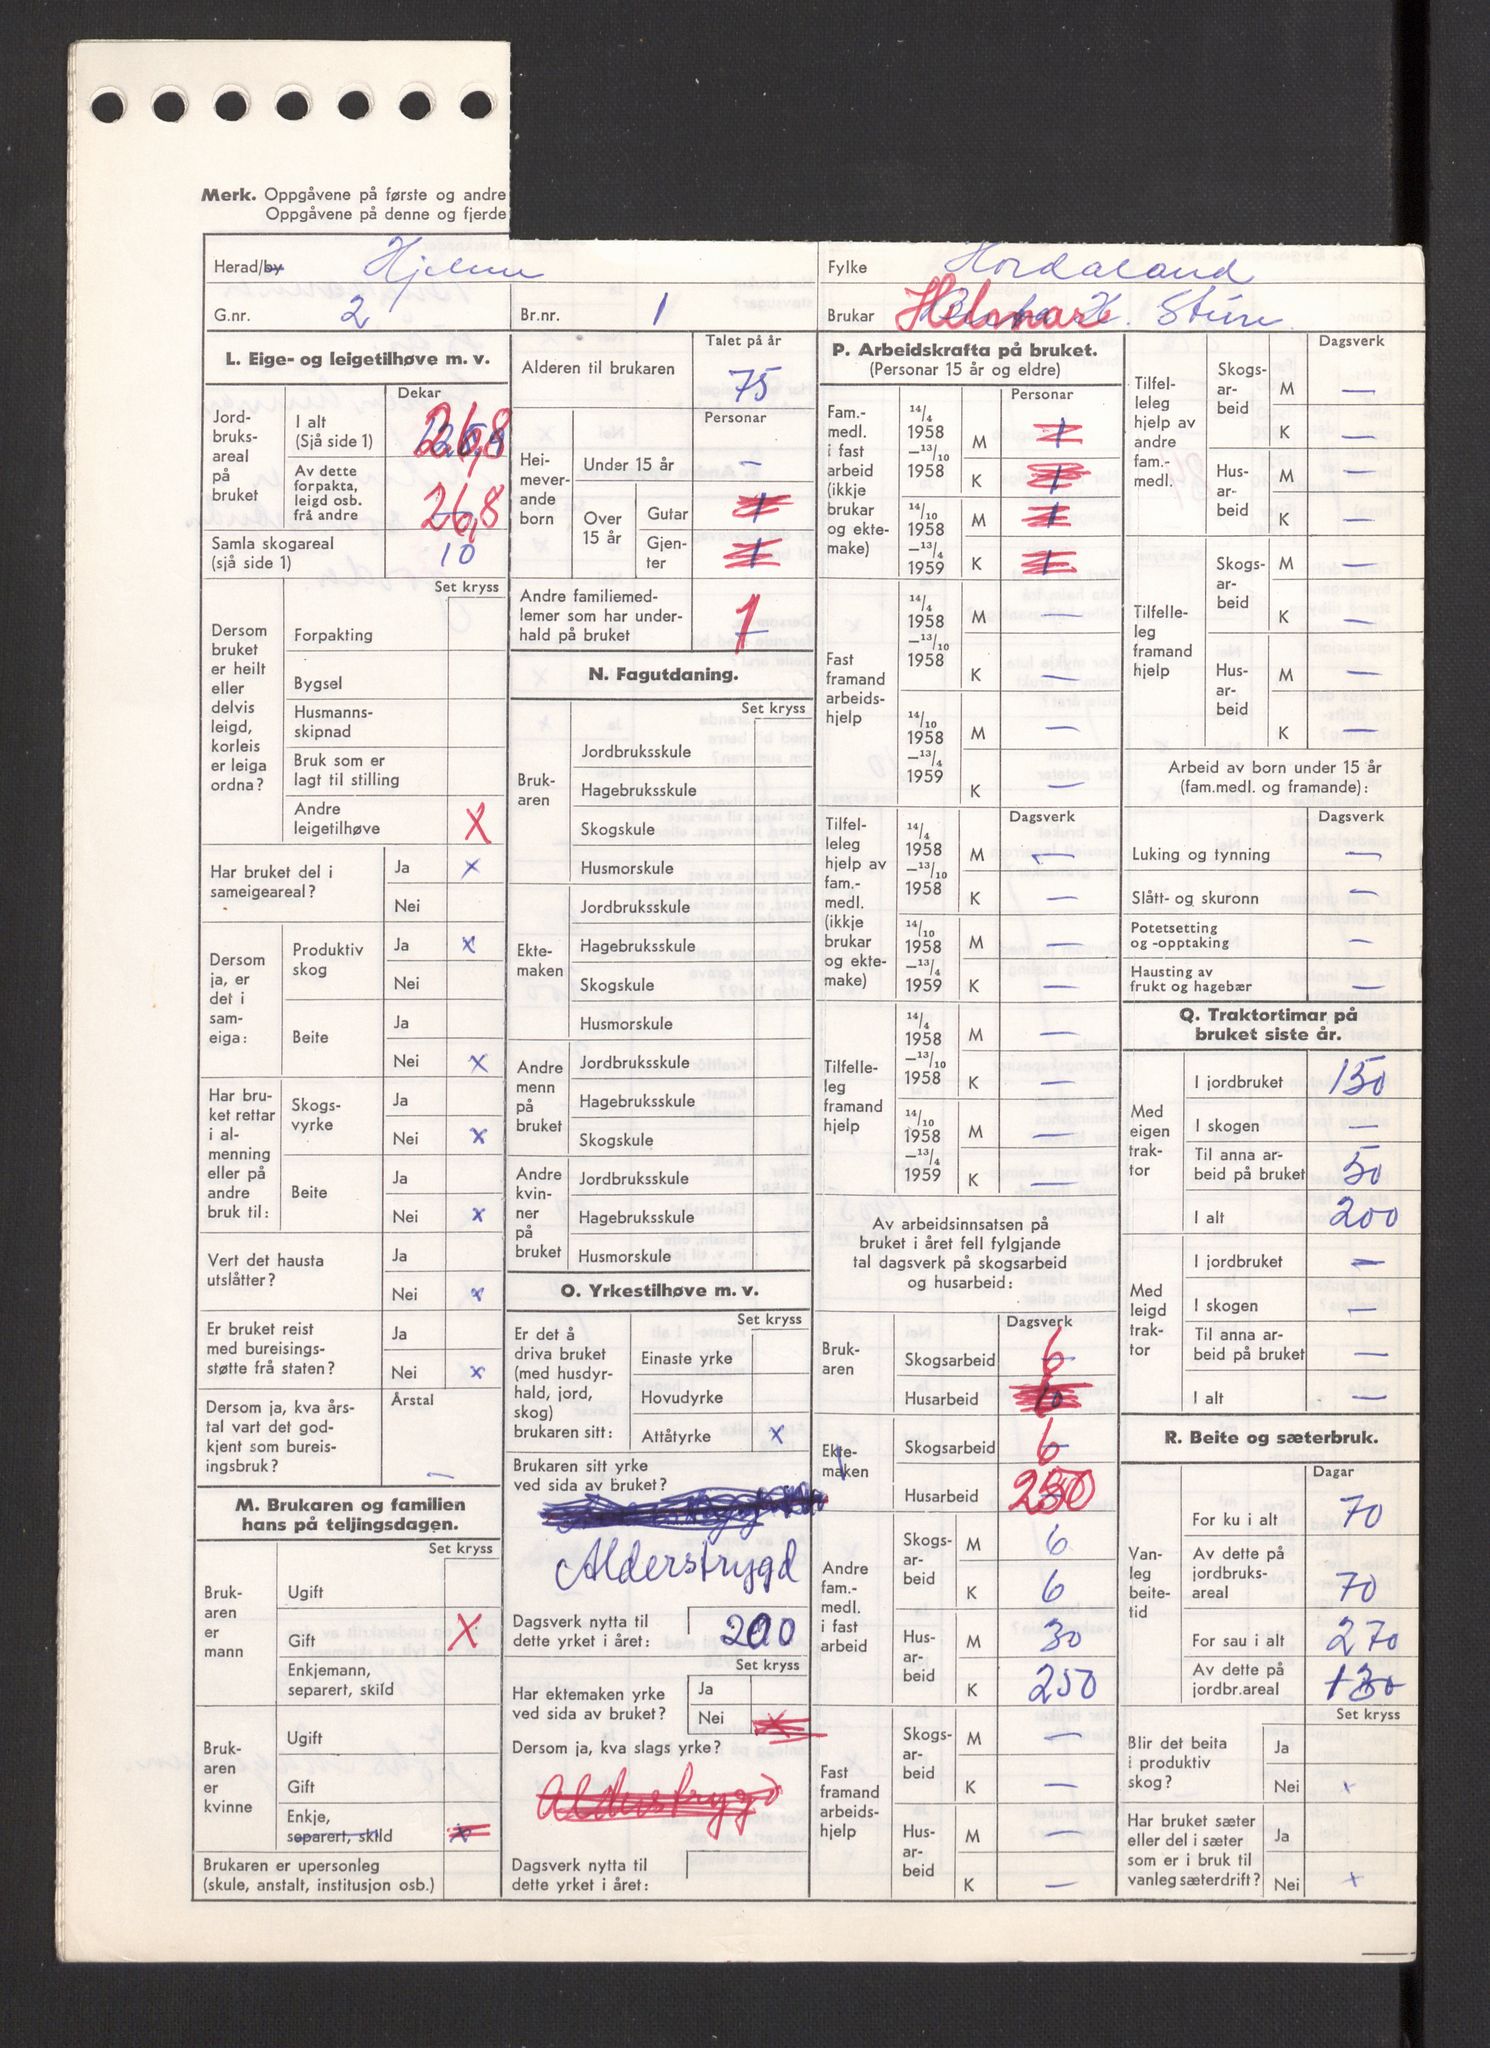 Merk. Oppgåvene på første og andre
Oppgåvene på denne og fjerde
Herad/by Hjelme
Fylke Hordaland
G.nr. 2
Br.nr. 1
Brukar Helmar K. Sture
L. Eige- og leigetilhøve m. v.
Dekar
Jord-
bruks-
areal
på
bruket
I alt
(Sjå side 1) 26,8
Av dette
forpakta,
leigd osb.
frå andre 26,8
Samla skogareal
(sjå side 1) 10
Set kryss
Dersom
bruket
er heilt
eller
delvis
leigd,
korleis
er leiga
ordna?
Forpakting
Bygsel
Husmanns-
skipnad
Bruk som er
lagt til stilling
Andre
leigetilhøve X
Har bruket del i
sameigeareal?
Ja x
Nei
Dersom
ja, er
det i
sam-
eiga:
Produktiv
skog
Ja x
Nei
Beite
Ja
Nei x
Har bru-
ket rettar
i al-
menning
eller på
andre
bruk til:
Skogs-
vyrke
Ja
Nei x
Beite
Ja
Nei x
Vert det hausta
utslåtter?
Ja
Nei x
Er bruket reist
med bureisings-
støtte frå staten?
Ja
Nei x
Dersom ja, kva års-
tal vart det god-
kjent som bureis-
ingsbruk?
Årstal
—
M. Brukaren og familien
hans på teljingsdagen.
Set kryss
Bruk-
aren
er
mann
Ugift
Gift X
Enkjemann,
separert, skild
Bruk-
aren
er
kvinne
Ugift
Gift
Enkje,
separert, skild x
Brukaren er upersonleg
(skule, anstalt, institusjon osb.)
Talet på år
Alderen til brukaren 75
Personar
Hei-
mever-
ande
born
Under 15 år —
Over
15 år
Gutar 1
Gjen-
ter 1
Andre familiemed-
lemer som har under-
hald på bruket 1
N. Fagutdaning.
Set kryss
Bruk-
aren
Jordbruksskule
Hagebruksskule
Skogskule
Husmorskule
Ekte-
maken
Jordbruksskule
Hagebruksskule
Skogskule
Husmorskule
Andre
menn
på
bruket
Jordbruksskule
Hagebruksskule
Skogskule
Andre
kvin-
ner
på
bruket
Jordbruksskule
Hagebruksskule
Husmorskule
O. Yrkestilhøve m. v.
Set kryss
Er det å
driva bruket
(med husdyr-
hald, jord,
skog)
brukaren sitt:
Einaste yrke
Hovudyrke
Attåtyrke x
Brukaren sitt yrke
ved sida av bruket?
Alderstrygd
Dagsverk nytta til
dette yrket i året: 200
Set kryss
Har ektemaken yrke
ved sida av bruket?
Ja
Nei x
Dersom ja, kva slags yrke?
Alderstrygd
Dagsverk nytta til
dette yrket i året:
P. Arbeidskrafta på bruket.
(Personar 15 år og eldre)
Personar
Fam.-
medl.
i fast
arbeid
(ikkje
brukar
og ekte-
make)
14/4
1958
—13/10
1958
M 1
K 1
14/10
1958
—13/4
1959
M 1
K 1
Fast
framand
arbeids-
hjelp
14/4
1958
—13/10
1958
M —
K —
14/10
1958
—13/4
1959
M —
K —
Dagsverk
Tilfel-
leleg
hjelp av
fam.-
medl.
(ikkje
brukar
og ekte-
make)
14/4
1958
—13/10
1958
M —
K —
14/10
1958
—13/4
1959
M —
K —
Tilfelle-
leg
framand
hjelp
14/4
1958
—13/10
1958
M —
K —
14/10
1958
—13/4
1959
M —
K —
Av arbeidsinnsatsen på
bruket i året fell fylgjande
tal dagsverk på skogsarbeid
og husarbeid:
Dagsverk
Bruk-
aren
Skogsarbeid 6
Husarbeid 10
Ekte-
maken
Skogsarbeid 6
Husarbeid 250
Andre
fam.-
medl.
i fast
arbeid
Skogs-
ar-
beid
M 6
K 6
Hus-
ar-
beid
M 30
K 250
Fast
framand
arbeids-
hjelp
Skogs-
ar-
beid
M —
K —
Hus-
ar-
beid
M —
K —
Dagsverk
Tilfel-
leleg
hjelp av
andre
fam.-
medl.
Skogs-
ar-
beid
M —
K —
Hus-
ar-
beid
M —
K —
Tilfelle-
leg
framand
hjelp
Skogs-
ar-
beid
M —
K —
Hus-
ar-
beid
M —
K —
Arbeid av born under 15 år
(fam.medl. og framande):
Dagsverk
Luking og tynning —
Slått- og skuronn —
Potetsetting
og -opptaking —
Hausting av
frukt og hagebær —
Q. Traktortimar på
bruket siste år.
Med
eigen
trak-
tor
I jordbruket 150
I skogen —
Til anna ar-
beid på bruket 50
I alt 200
Med
leigd
trak-
tor
I jordbruket —
I skogen —
Til anna ar-
beid på bruket —
I alt —
R. Beite og sæterbruk.
Dagar
Van-
leg
beite-
tid
For ku i alt 70
Av dette på
jordbruks-
areal 70
For sau i alt 270
Av dette på
jordbr.areal 130
Set kryss
Blir det beita
i produktiv
skog?
Ja
Nei x
Har bruket sæter
eller del i sæter
som er i bruk til
vanleg sæterdrift?
Ja
Nei x